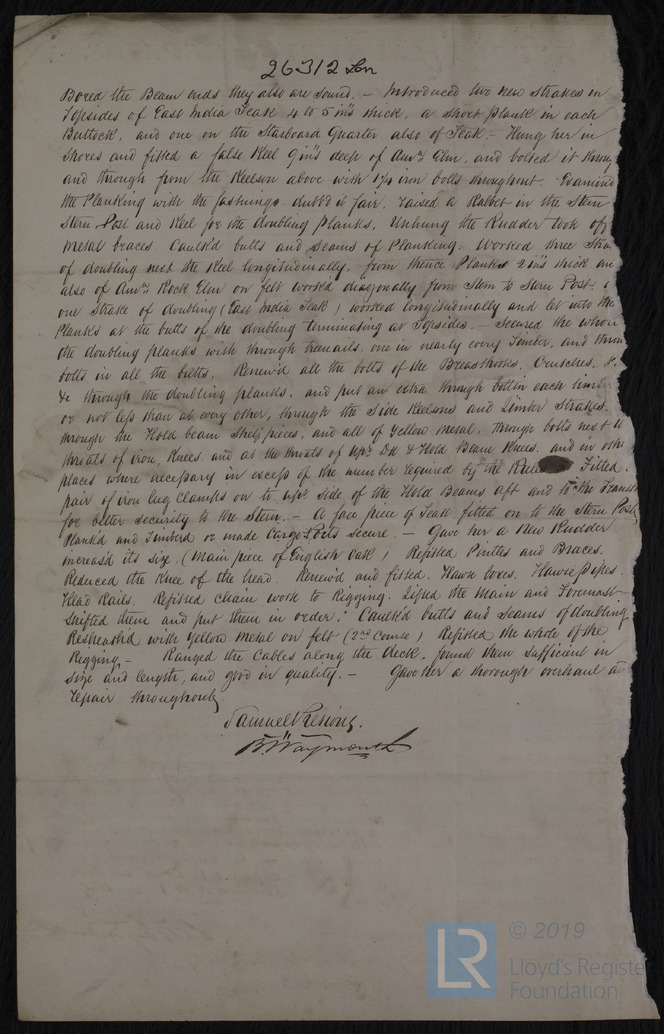 26312 Lon
Bored the Beam ends they also are sound. – Introduced two new strakes in
Topsides of East India Teak 4 to 5 ins thick, a short plank in each
Buttock, and one on the Starboard Quarter also of Teak. – Hung her in
Shores and fitted a false Keel 9 ins deep of Amn Elm, and bolted it throu
and through from the Keelson above with 1 1/4 iron bolts throughout. Examin'd
the Planking with the fastnings. dubb'd it fair. Raised a Rabbet in the Stem
Stern Post and Keel for the doubling Planks. Unhung the Rudder took off
Metal braces. Caulk'd butts and seams of Planking. Worked three Stra
of doubling next the Keel longitudinally. from thence Planks 2 ins thick an
also of Amn Rock Elm on felt work'd diagonally from Stem to Stern Post.
one Strake of doubling (East India Teak) worked longitudinally and let into the
Planks at the butts of the doubling terminating at Topsides. – Secured the whole
the doubling planks with through treenails one in nearly every Timber, and throu
bolts in all the butts. Renew'd all the bolts of the Breasthooks, Crutches, &
&c through the doubling planks, and put an extra through bolt in each timber
or not less than at every other, through the Side Kelsons and Limber Strakes,
through the Hold beam Shelf pieces, and all of Yellow Metal. Through bolts next to
throats of iron Knees and at the throats of Upr Dk & Hold Beam Knees, and in othe
places where necessary in excess of the number required by the Rule Fitted
pair of iron lug clamps on to upr side of the Hold Beams aft and to the Transom
for better security to the Stern. – A face piece of Teak fitted on to the Stern Post
Plank'd and Timber'd or made Cargo Ports secure. – Gave her a New Rudder
increas'd its size. (Main piece of English Oak) Refitted Pintles and Braces.
Reduced the Knee of the head. Renew'd and fitted. Hawse boxes. Hawse Pipes.
Head Rails. Refitted chain work to Rigging. Lifted the Main and Foremast
Shifted them and put them in order. Caulk'd butts and seams of doubling
Resheath'd with Yellow Metal on felt (2nd Course) Refitted the whole of the
Rigging. – Ranged the Cables along the deck, found them sufficient in
size and length, and good in quality. – Gave her a thorough overhaul an
repair throughout.
Samuel
B Waymouth
© 2019
LR
Lloyd's Register
Foundation